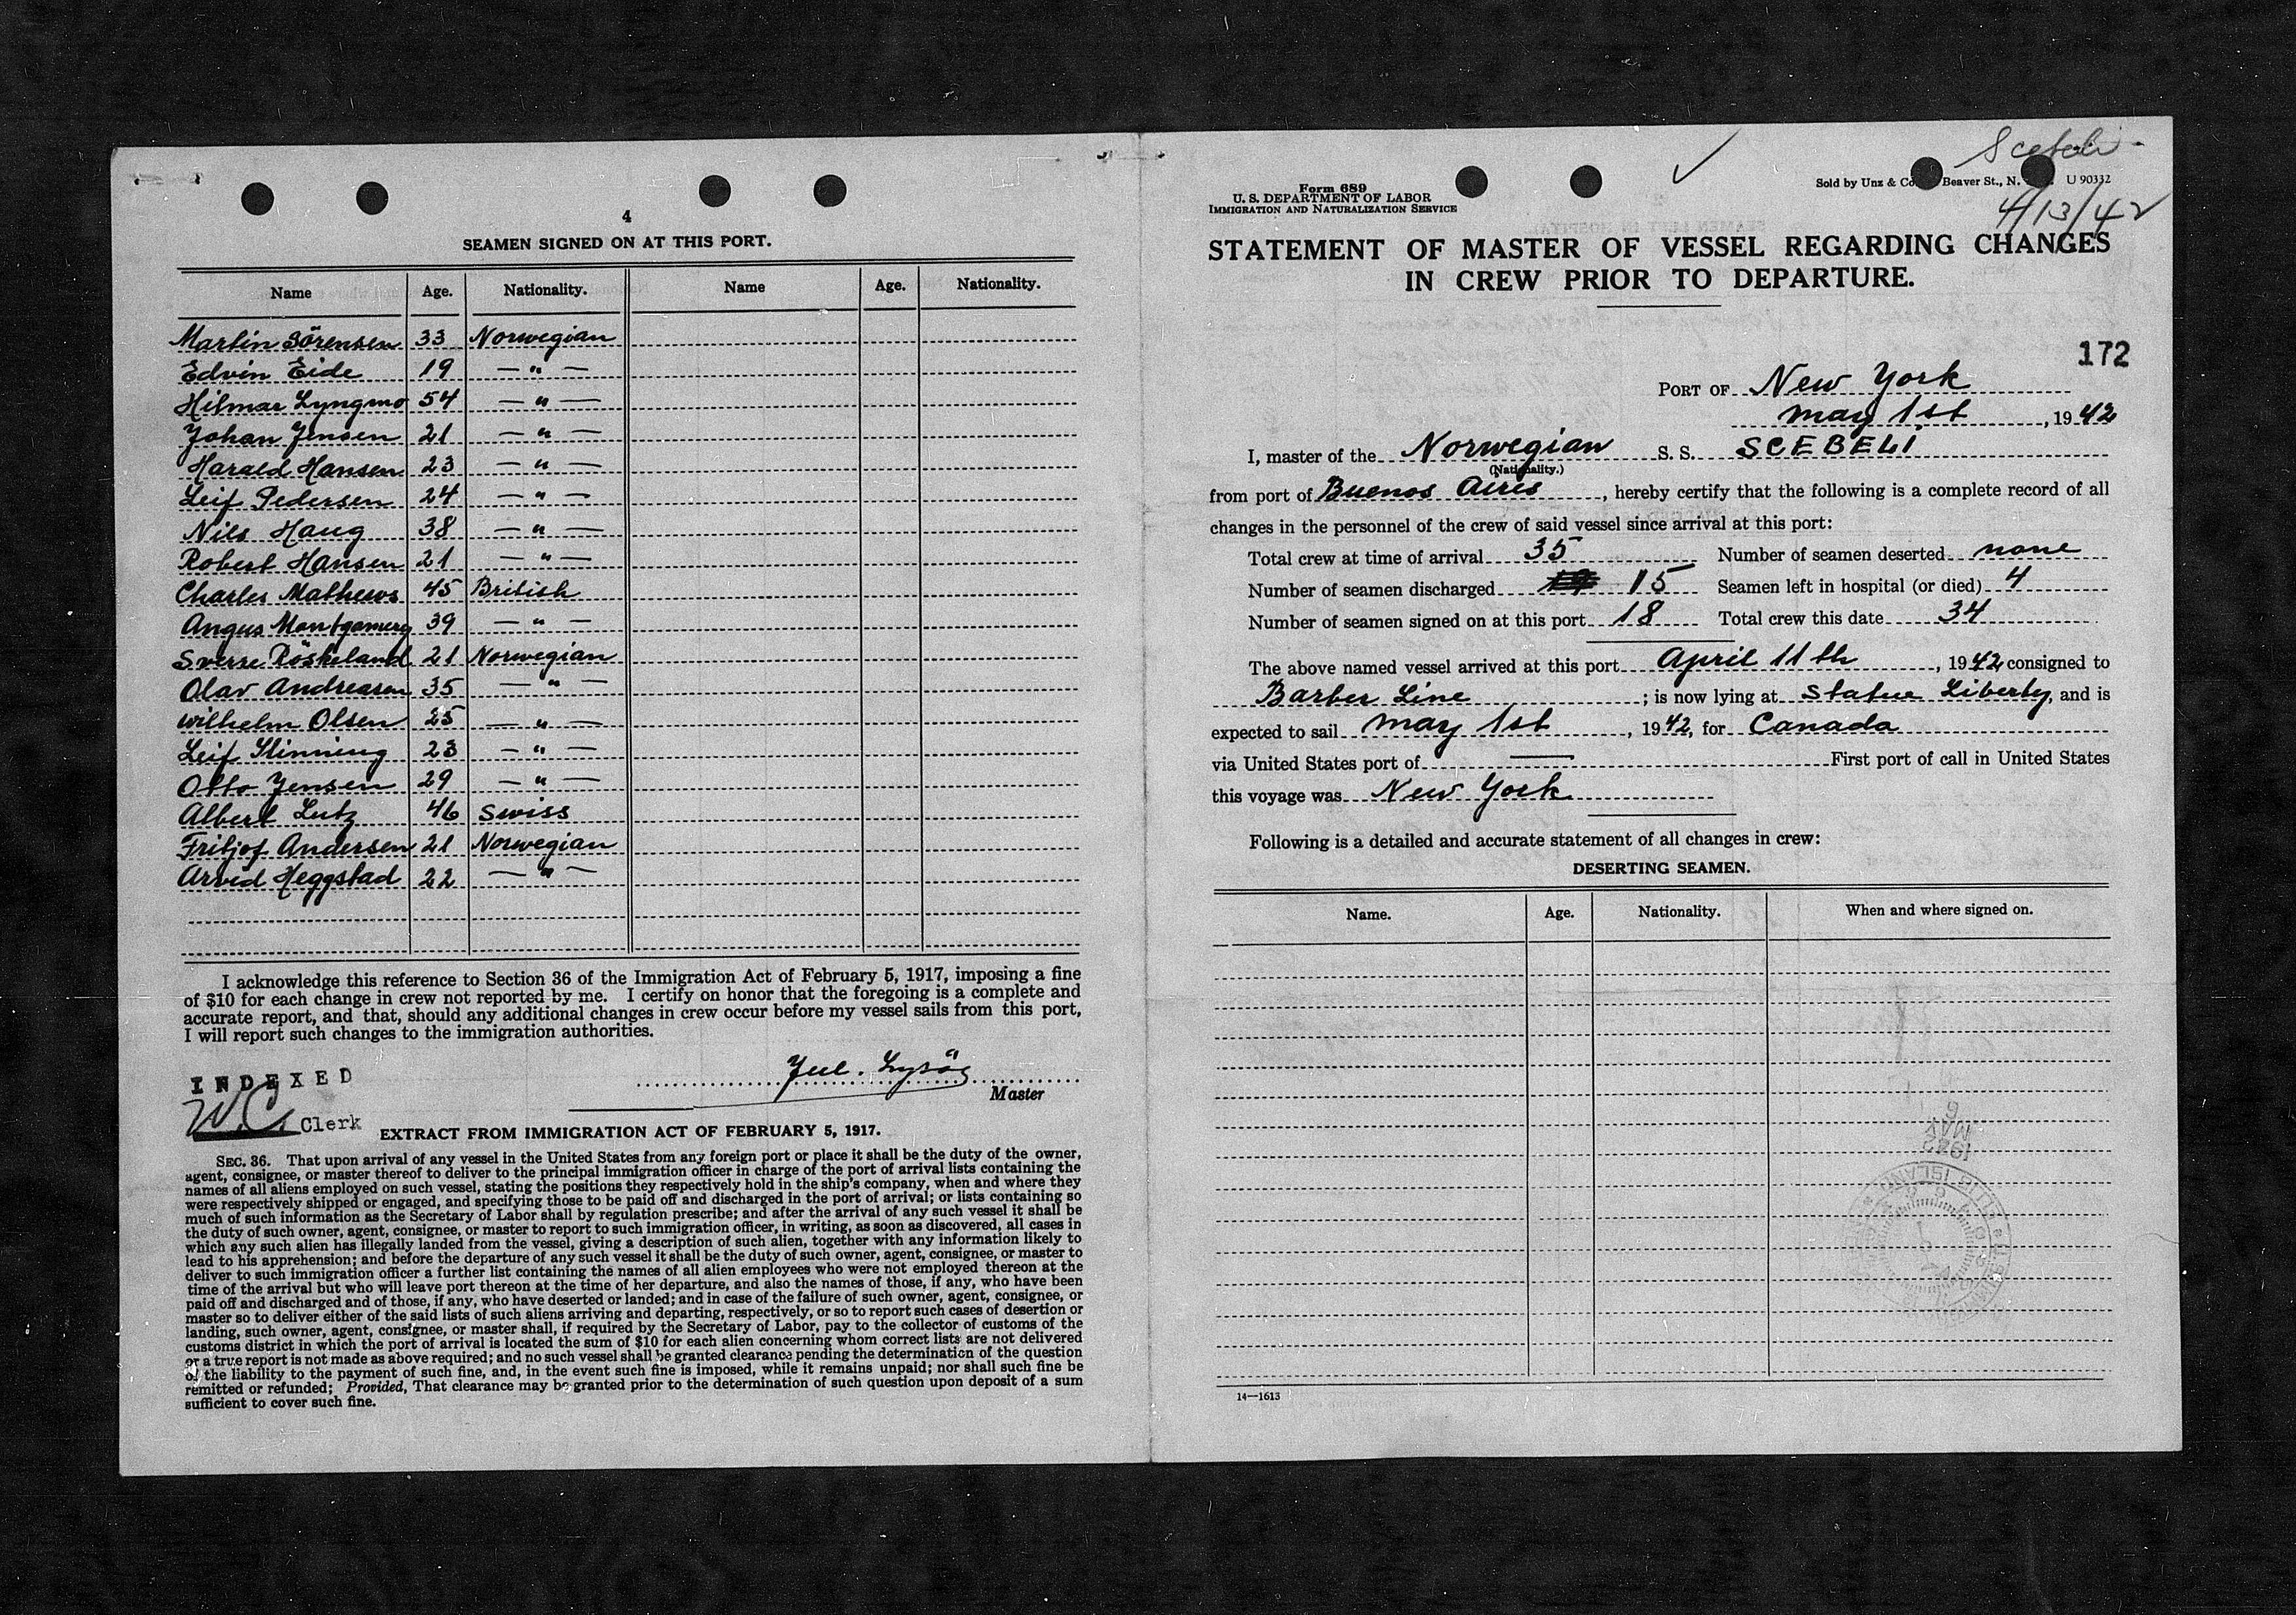 4
SEAMEN SIGNED ON AT THIS PORT.
Name Age. Nationality. Name Age. Nationality.
Martin Sörensen 33 Norwegian
Edvin Eide 19 — " —
Hilmar Lyngmo 54 — " —
Johan Jensen 21 — " —
Harald Hansen 23 — " —
Leif Pedersen 24 — " —
Nils Haug 38 — " —
Robert Hansen 21 — " —
Charles Mathews 45 British
Angus Montgomery 39 — " —
Sverre Röskeland 21 Norwegian
Olav Andreasen 35 — " —
Wilhelm Olsen 25 — " —
Leif Slinning 23 — " —
Otto Jensen 29 — " —
Albert Lutz 46 Swiss
Fritjof Andersen 21 Norwegian
Arvid Heggstad 22 — " —
I acknowledge this reference to Section 36 of the Immigration Act of February 5, 1917, imposing a fine
of $10 for each change in crew not reported by me. I certify on honor that the foregoing is a complete and
accurate report, and that, should any additional changes in crew occur before my vessel sails from this port,
I will report such changes to the immigration authorities.
Jul. Lysög
Master
INDEXED
W.C. Clerk
EXTRACT FROM IMMIGRATION ACT OF FEBRUARY 5, 1917.
SEC. 36. That upon arrival of any vessel in the United States from any foreign port or place it shall be the duty of the owner,
agent, consignee, or master thereof to deliver to the principal immigration officer in charge of the port of arrival lists containing the
names of all aliens employed on such vessel, stating the positions they respectively hold in the ship's company, when and where they
were respectively shipped or engaged, and specifying those to be paid off and discharged in the port of arrival; or lists containing so
much of such information as the Secretary of Labor shall by regulation prescribe; and after the arrival of any such vessel it shall be
the duty of such owner, agent, consignee, or master to report to such immigration officer, in writing, as soon as discovered, all cases in
which any such alien has illegally landed from the vessel, giving a description of such alien, together with any information likely to
lead to his apprehension; and before the departure of any such vessel it shall be the duty of such owner, agent, consignee, or master to
deliver to such immigration officer a further list containing the names of all alien employees who were not employed thereon at the
time of the arrival but who will leave port thereon at the time of her departure, and also the names of those, if any, who have been
paid off and discharged and of those, if any, who have deserted or landed; and in case of the failure of such owner, agent, consignee, or
master so to deliver either of the said lists of such aliens arriving and departing, respectively, or so to report such cases of desertion or
landing, such owner, agent, consignee, or master shall, if required by the Secretary of Labor, pay to the collector of customs of the
customs district in which the port of arrival is located the sum of $10 for each alien concerning whom correct lists are not delivered
or a true report is not made as above required; and no such vessel shall be granted clearance pending the determination of the question
of the liability to the payment of such fine, and, in the event such fine is imposed, while it remains unpaid; nor shall such fine be
remitted or refunded; Provided, That clearance may be granted prior to the determination of such question upon deposit of a sum
sufficient to cover such fine.
Scebeli -
Form 689
U. S. DEPARTMENT OF LABOR
IMMIGRATION AND NATURALIZATION SERVICE
Sold by Unz & Co. Beaver St., N. U 90332
4/13/42
STATEMENT OF MASTER OF VESSEL REGARDING CHANGES
IN CREW PRIOR TO DEPARTURE.
172
PORT OF New York
May 1st, 1942
I, master of the Norwegian S. S. SCEBELI
(Nationality.)
from port of Buenos Aires, hereby certify that the following is a complete record of all
changes in the personnel of the crew of said vessel since arrival at this port:
Total crew at time of arrival 35 Number of seamen deserted none
Number of seamen discharged 15 Seamen left in hospital (or died) 4
Number of seamen signed on at this port 18 Total crew this date 34
The above named vessel arrived at this port April 11th, 1942 consigned to
Barber Line; is now lying at Statue Liberty, and is
expected to sail May 1st, 1942, for Canada
via United States port of — First port of call in United States
this voyage was New York
Following is a detailed and accurate statement of all changes in crew:
DESERTING SEAMEN.
Name. Age. Nationality. When and where signed on.
1942
MAY
6
ELLIS ISLAND
14—1613